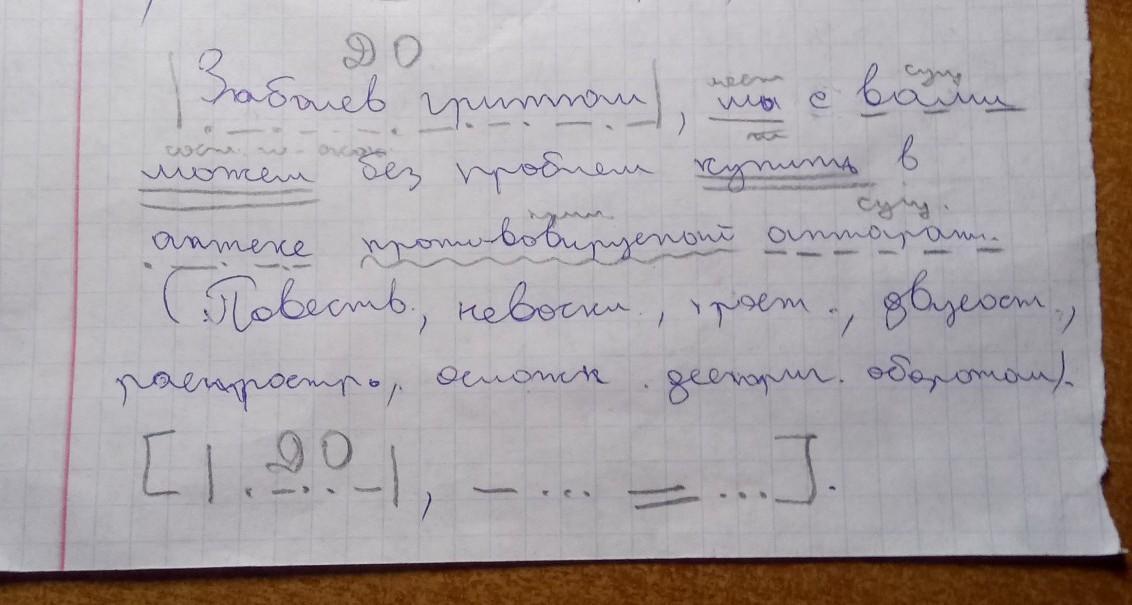 ДО
|Заболев гриппом|, мы с вами
мест сущ.
можем без проблем купить в
аптеке противовирусный аппарат.
прил. сущ.
(Повеств., невоскл., прост., двусост.,
распростр., осложн. дееприч. оборотом).
[|ДО|, — ... = ...].